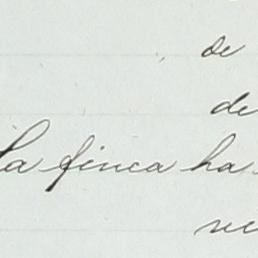 de
de
La finca ha